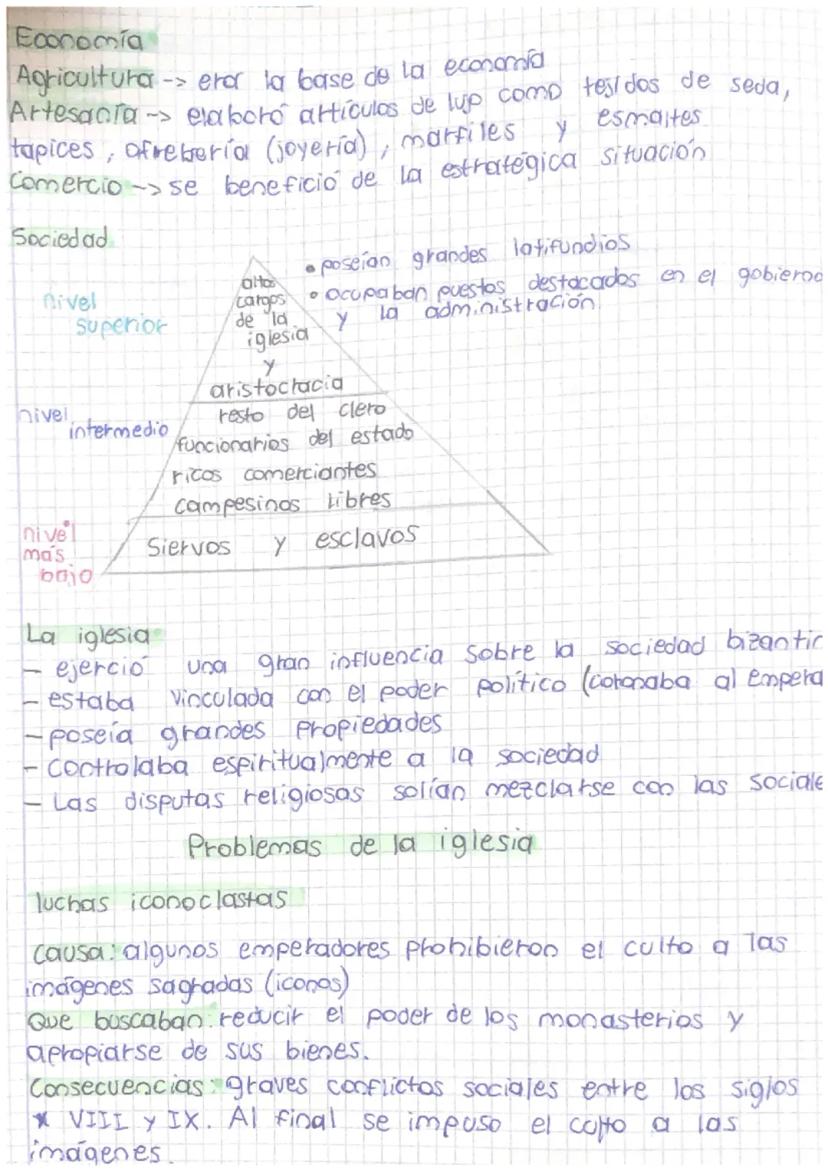 Economía
Agricultura -> era la base de la economía
Artesanía -> elaboró artículos de lujo como tesidos de seda,
tapices, ofrebería (joyería), marfiles y esmaltes
Comercio -> se benefició de la estratégica situación
Sociedad
• poseían grandes latifundios
• ocupaban puestos destacados en el gobierno
y la administración
nivel
superior
altos
cargos
de la
iglesia
y
aristocracia
nivel
intermedio
resto del clero
funcionarios del estado
ricos comerciantes
campesinos libres
nivel
más
bajo
Siervos y esclavos
La iglesia
- ejerció una gran influencia sobre la sociedad bizantin
- estaba vinculada con el poder político (coronaba al empera
- poseía grandes propiedades
- controlaba espiritualmente a la sociedad
- Las disputas religiosas solían mezclarse con las sociale
Problemas de la iglesia
luchas iconoclastas
causa: algunos emperadores prohibieron el culto a las
imágenes sagradas (iconos)
Que buscaban: reducir el poder de los monasterios y
apropiarse de sus bienes.
Consecuencias: graves conflictos sociales entre los siglos
VIII y IX. Al final se impuso el culto a las
imágenes.